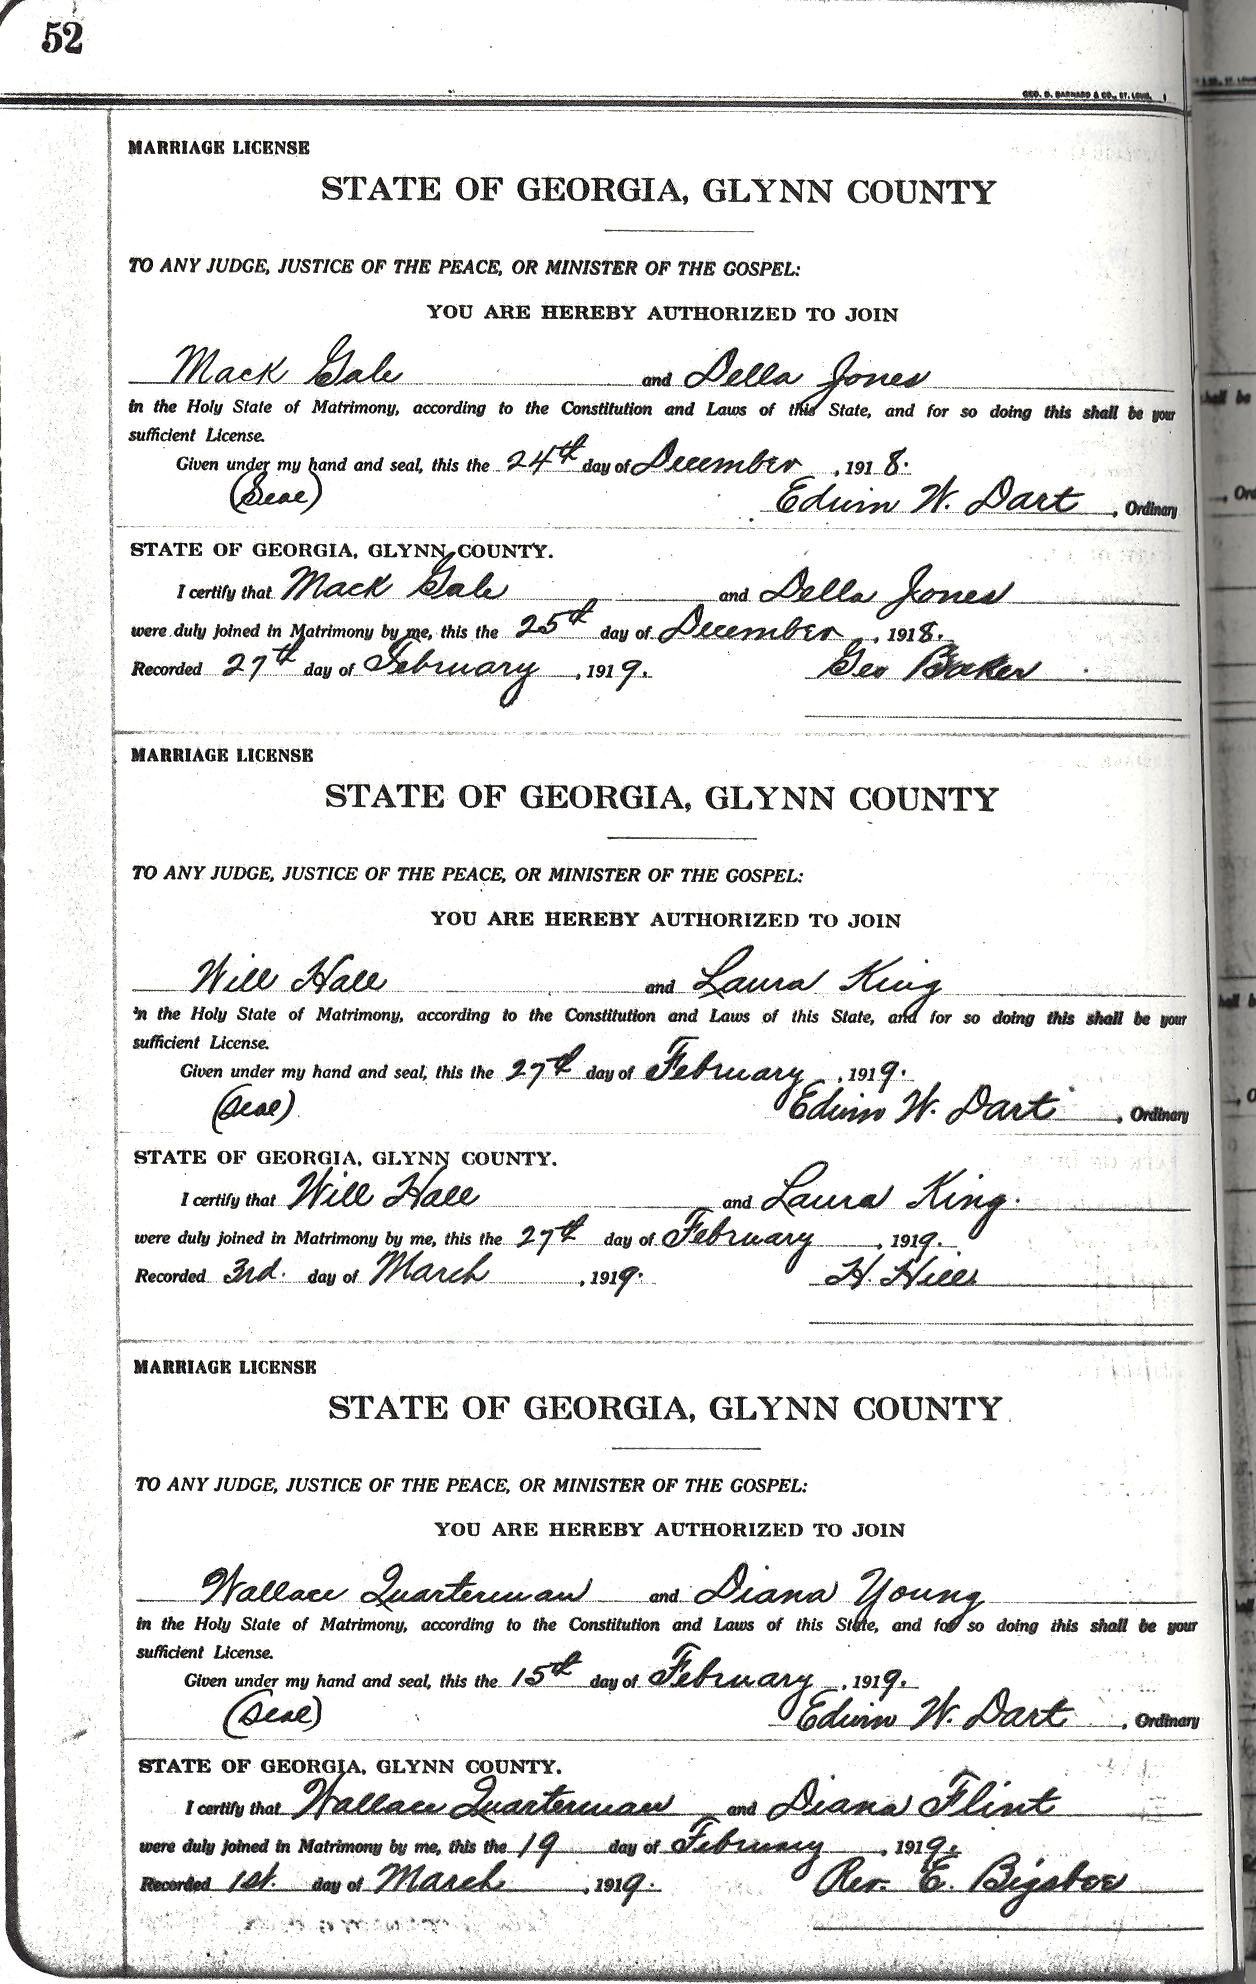 52
GEO. D. BARNARD & CO., ST. LOUIS.
MARRIAGE LICENSE
STATE OF GEORGIA, GLYNN COUNTY
TO ANY JUDGE, JUSTICE OF THE PEACE, OR MINISTER OF THE GOSPEL:
YOU ARE HEREBY AUTHORIZED TO JOIN
Mack Gale and Della Jones
in the Holy State of Matrimony, according to the Constitution and Laws of this State, and for so doing this shall be your
sufficient License.
Given under my hand and seal, this the 24th day of December, 1918.
(Seal) Edwin W. Dart, Ordinary
STATE OF GEORGIA, GLYNN COUNTY.
I certify that Mack Gale and Della Jones
were duly joined in Matrimony by me, this the 25th day of December, 1918.
Recorded 27th day of February, 1919. Geo Baker
MARRIAGE LICENSE
STATE OF GEORGIA, GLYNN COUNTY
TO ANY JUDGE, JUSTICE OF THE PEACE, OR MINISTER OF THE GOSPEL:
YOU ARE HEREBY AUTHORIZED TO JOIN
Will Hall and Laura King
in the Holy State of Matrimony, according to the Constitution and Laws of this State, and for so doing this shall be your
sufficient License.
Given under my hand and seal, this the 27th day of February, 1919.
(Seal) Edwin W. Dart, Ordinary
STATE OF GEORGIA, GLYNN COUNTY.
I certify that Will Hall and Laura King.
were duly joined in Matrimony by me, this the 27th day of February, 1919.
Recorded 3rd. day of March, 1919. H. Hill
MARRIAGE LICENSE
STATE OF GEORGIA, GLYNN COUNTY
TO ANY JUDGE, JUSTICE OF THE PEACE, OR MINISTER OF THE GOSPEL:
YOU ARE HEREBY AUTHORIZED TO JOIN
Wallace Quarterman and Diana Young
in the Holy State of Matrimony, according to the Constitution and Laws of this State, and for so doing this shall be your
sufficient License.
Given under my hand and seal, this the 15th day of February, 1919.
(Seal) Edwin W. Dart, Ordinary
STATE OF GEORGIA, GLYNN COUNTY.
I certify that Wallace Quarterman and Diana Flint
were duly joined in Matrimony by me, this the 19 day of February, 1919.
Recorded 1st. day of March, 1919. Rev. E. Bigsboe